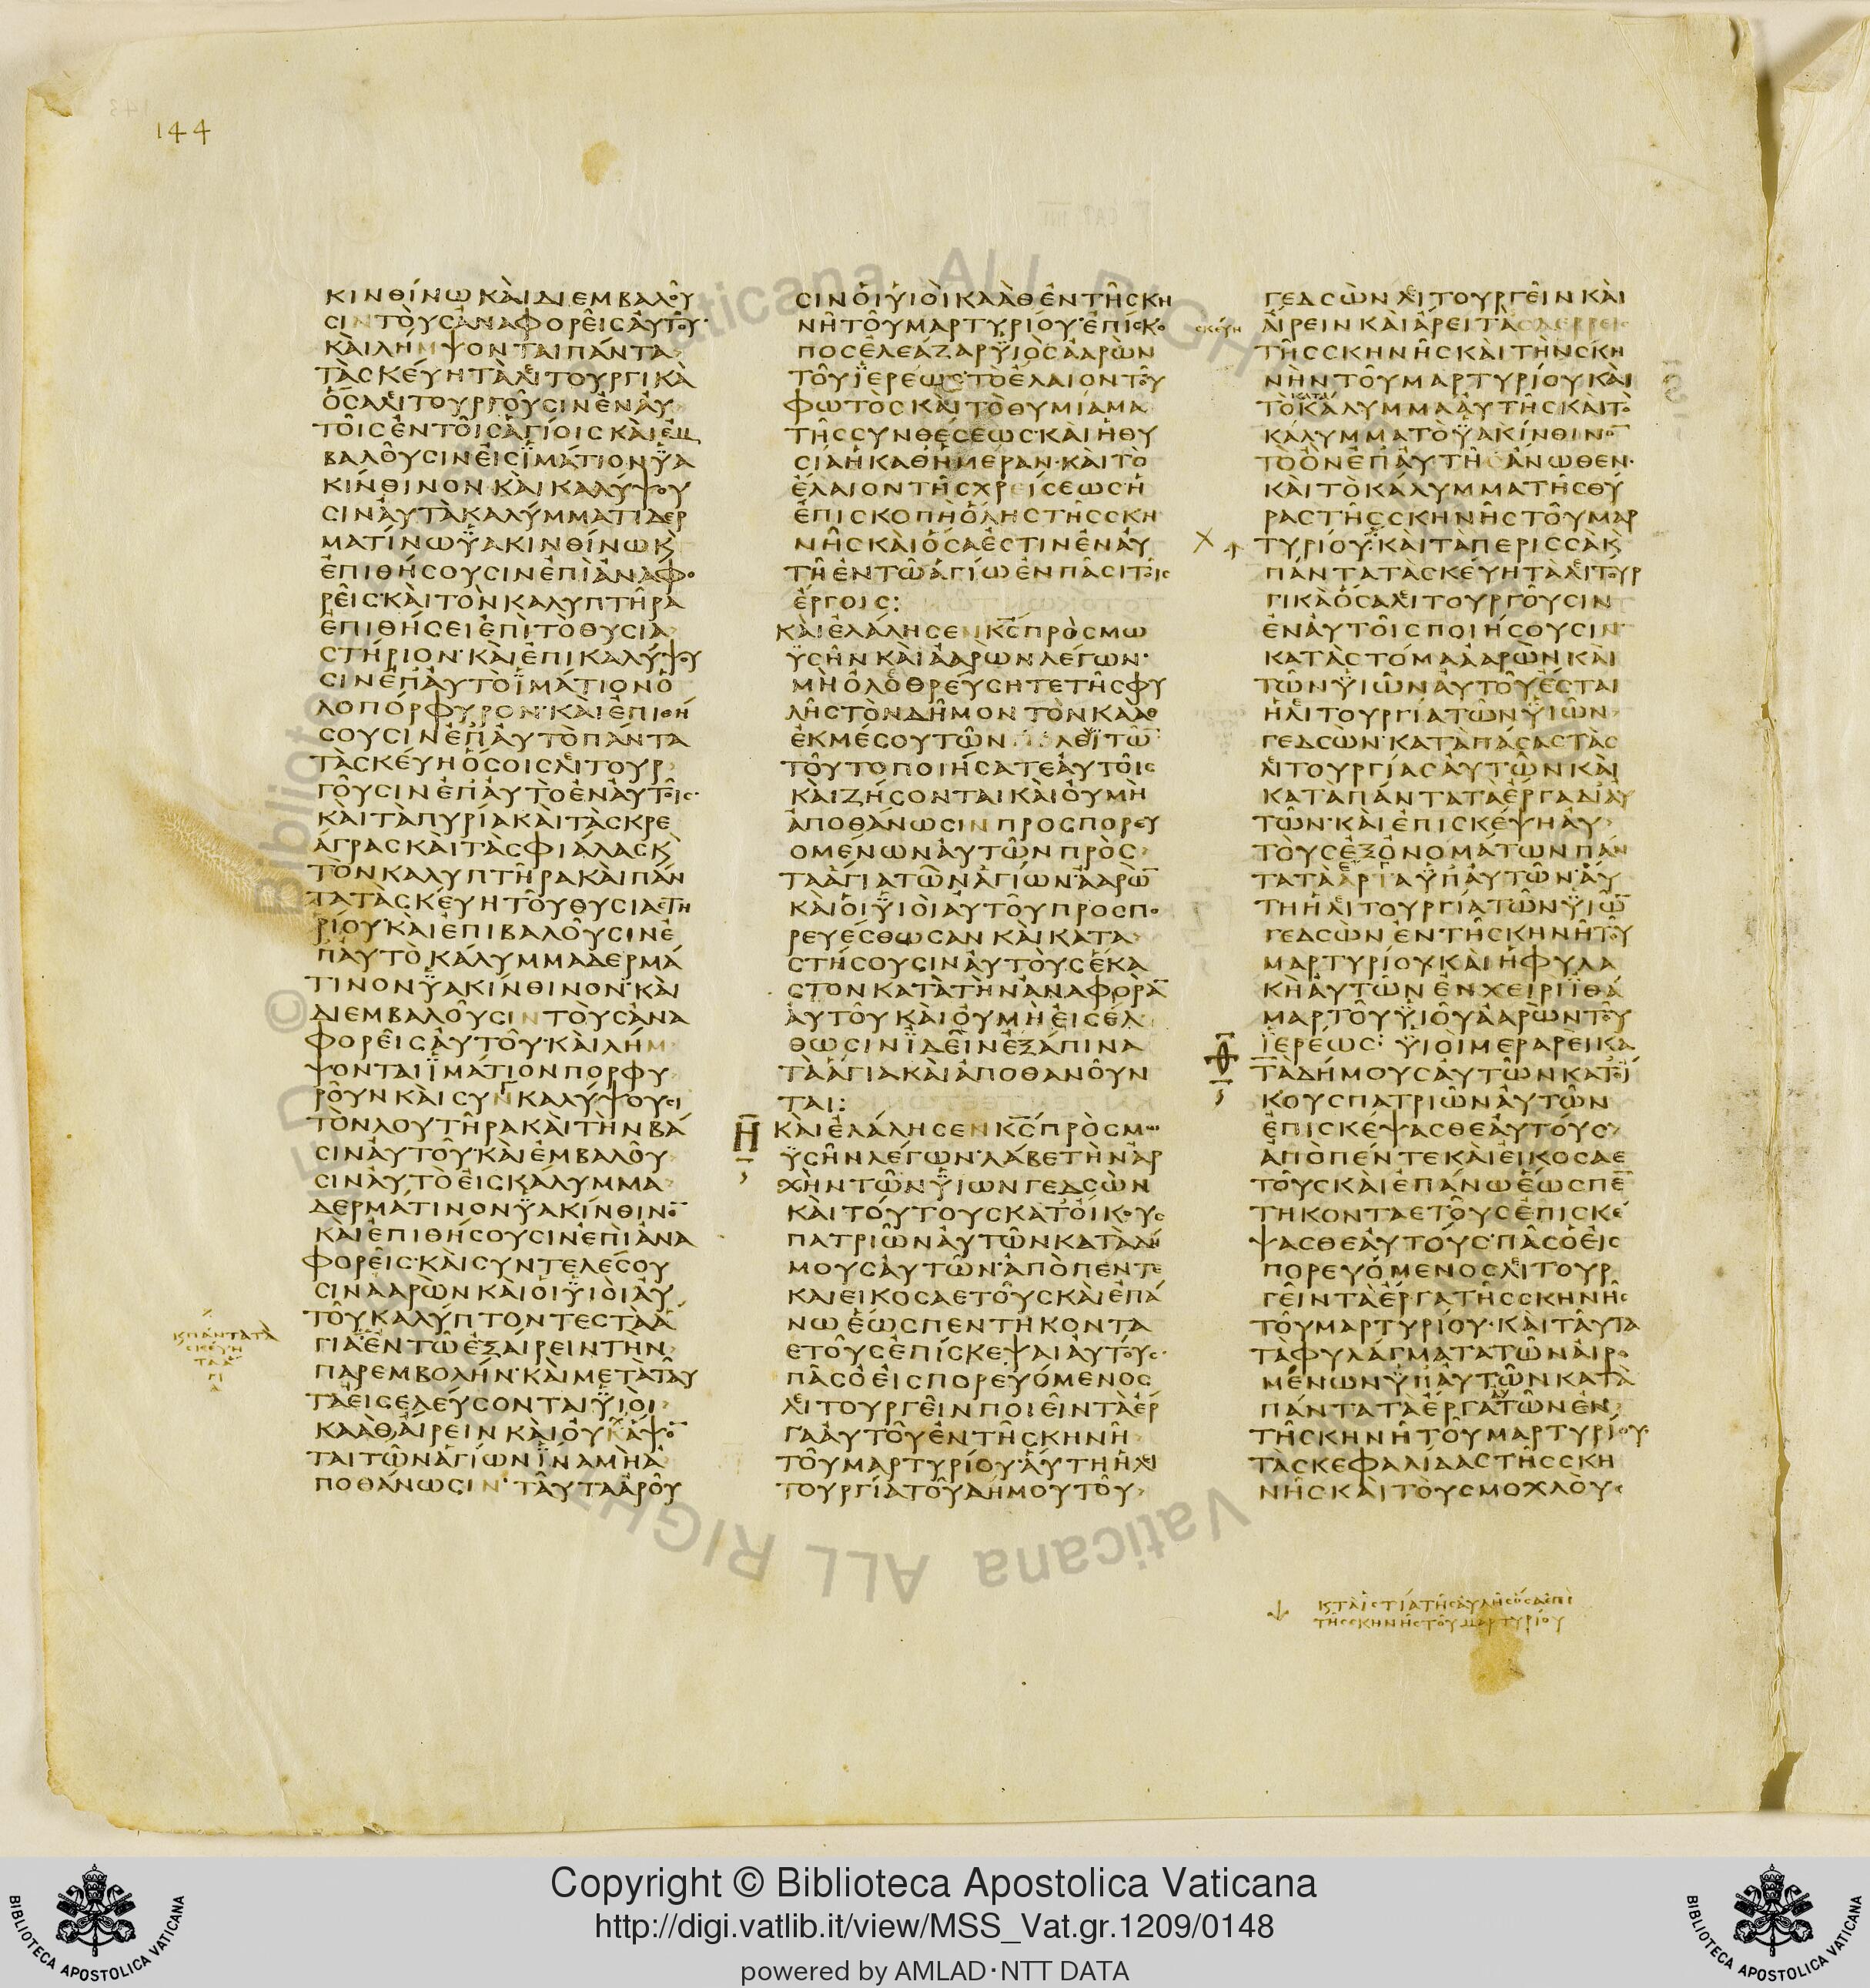 144
ΚΙΝΘΙΝΩ ΚΑΙ ΔΙΕΜΒΑΛΟΥ
ΣΙΝ ΤΟΥΣ ΑΝΑΦΟΡΕΙΣ ΑΥΤΟΥ·
ΚΑΙ ΛΗΜΨΟΝΤΑΙ ΠΑΝΤΑ
ΤΑ ΣΚΕΥΗ ΤΑ ΛΙΤΟΥΡΓΙΚΑ
ΟΣΑ ΛΙΤΟΥΡΓΟΥΣΙΝ ΕΝ ΑΥ
ΤΟΙΣ ΕΝ ΤΟΙΣ ΑΓΙΟΙΣ ΚΑΙ ΕΜ
ΒΑΛΟΥΣΙΝ ΕΙΣ ΙΜΑΤΙΟΝ ΥΑ
ΚΙΝΘΙΝΟΝ ΚΑΙ ΚΑΛΥΨΟΥ
ΣΙΝ ΑΥΤΑ ΚΑΛΥΜΜΑΤΙ ΔΕΡ
ΜΑΤΙΝΩ ΥΑΚΙΝΘΙΝΩ Κ
ΕΠΙΘΗΣΟΥΣΙΝ ΕΠΙ ΑΝΑΦΟ
ΡΕΙΣ· ΚΑΙ ΤΟΝ ΚΑΛΥΠΤΗΡΑ
ΕΠΙΘΗΣΕΙ ΕΠΙ ΤΟ ΘΥΣΙΑ
ΣΤΗΡΙΟΝ· ΚΑΙ ΕΠΙΚΑΛΥΨΟΥ
ΣΙΝ ΕΠ ΑΥΤΟ ΙΜΑΤΙΟΝ Ο
ΛΟΠΟΡΦΥΡΟΝ· ΚΑΙ ΕΠΙΘΗ
ΣΟΥΣΙΝ ΕΠ ΑΥΤΟ ΠΑΝΤΑ
ΤΑ ΣΚΕΥΗ ΟΣΟΙΣ ΛΙΤΟΥΡ
ΓΟΥΣΙΝ ΕΠ ΑΥΤΟ ΕΝ ΑΥΤΟΙΣ·
ΚΑΙ ΤΑ ΠΥΡΙΑ ΚΑΙ ΤΑΣ ΚΡΕ
ΑΓΡΑΣ ΚΑΙ ΤΑΣ ΦΙΑΛΑΣ Κ
ΤΟΝ ΚΑΛΥΠΤΗΡΑ ΚΑΙ ΠΑΝ
ΤΑ ΤΑ ΣΚΕΥΗ ΤΟΥ ΘΥΣΙΑΣΤΗ
ΡΙΟΥ· ΚΑΙ ΕΠΙΒΑΛΟΥΣΙΝ Ε
Π ΑΥΤΟ ΚΑΛΥΜΜΑ ΔΕΡΜΑ
ΤΙΝΟΝ ΥΑΚΙΝΘΙΝΟΝ· ΚΑΙ
ΔΙΕΜΒΑΛΟΥΣΙΝ ΤΟΥΣ ΑΝΑ
ΦΟΡΕΙΣ ΑΥΤΟΥ· ΚΑΙ ΛΗΜ
ΨΟΝΤΑΙ ΙΜΑΤΙΟΝ ΠΟΡΦΥ
ΡΟΥΝ ΚΑΙ ΣΥΝΚΑΛΥΨΟΥΣΙ
ΤΟΝ ΛΟΥΤΗΡΑ ΚΑΙ ΤΗΝ ΒΑ
ΣΙΝ ΑΥΤΟΥ· ΚΑΙ ΕΜΒΑΛΟΥ
ΣΙΝ ΑΥΤΟ ΕΙΣ ΚΑΛΥΜΜΑ
ΔΕΡΜΑΤΙΝΟΝ ΥΑΚΙΝΘΙΝΟ̅
ΚΑΙ ΕΠΙΘΗΣΟΥΣΙΝ ΕΠΙ ΑΝΑ
ΦΟΡΕΙΣ· ΚΑΙ ΣΥΝΤΕΛΕΣΟΥ
ΣΙΝ ΑΑΡΩΝ ΚΑΙ ΟΙ ΥΙΟΙ ΑΥ
ΤΟΥ ΚΑΛΥΠΤΟΝΤΕΣ ΤΑ Α
ΓΙΑ ΕΝ ΤΩ ΕΞΑΙΡΕΙΝ ΤΗΝ
ΠΑΡΕΜΒΟΛΗΝ· ΚΑΙ ΜΕΤΑ ΤΑΥ
ΤΑ ΕΙΣΕΛΕΥΣΟΝΤΑΙ ΥΙΟΙ
ΚΑΑΘ ΑΙΡΕΙΝ ΚΑΙ ΟΥΧ ΑΨΟ̅
ΤΑΙ ΤΩΝ ΑΓΙΩΝ ΙΝΑ ΜΗ Α
ΠΟΘΑΝΩΣΙΝ· ΤΑΥΤΑ ΑΡΟΥ
Κ ΠΑΝΤΑ ΤΑ
ΣΚΕΥΗ
ΤΑ Α
ΓΙ
Α
ΣΙΝ ΟΙ ΥΙΟΙ ΚΑΑΘ ΕΝ ΤΗ ΣΚΗ
ΝΗ ΤΟΥ ΜΑΡΤΥΡΙΟΥ· ΕΠΙΣΚΟ
ΠΟΣ ΕΛΕΑΖΑΡ ΥΙΟΣ ΑΑΡΩΝ
ΤΟΥ ΙΕΡΕΩΣ· ΤΟ ΕΛΑΙΟΝ ΤΟΥ
ΦΩΤΟΣ ΚΑΙ ΤΟ ΘΥΜΙΑΜΑ
ΤΗΣ ΣΥΝΘΕΣΕΩΣ· ΚΑΙ Η ΘΥ
ΣΙΑ Η ΚΑΘ ΗΜΕΡΑΝ· ΚΑΙ ΤΟ
ΕΛΑΙΟΝ ΤΗΣ ΧΡΕΙΣΕΩΣ· Η
ΕΠΙΣΚΟΠΗ ΟΛΗΣ ΤΗΣ ΣΚΗ
ΝΗΣ ΚΑΙ ΟΣΑ ΕΣΤΙΝ ΕΝ ΑΥ
ΤΗ ΕΝ ΤΩ ΑΓΙΩ ΕΝ ΠΑΣΙ ΤΟΙΣ
ΕΡΓΟΙΣ:
ΚΑΙ ΕΛΑΛΗΣΕΝ Κ̅Σ̅ ΠΡΟΣ ΜΩ
ΥΣΗΝ ΚΑΙ ΑΑΡΩΝ ΛΕΓΩΝ·
ΜΗ ΟΛΟΘΡΕΥΣΗΤΕ ΤΗΣ ΦΥ
ΛΗΣ ΤΟΝ ΔΗΜΟΝ ΤΟΝ ΚΑΑΘ
ΕΚ ΜΕΣΟΥ ΤΩΝ ΛΕΥΙΤΩ̅
ΤΟΥΤΟ ΠΟΙΗΣΑΤΕ ΑΥΤΟΙΣ
ΚΑΙ ΖΗΣΟΝΤΑΙ ΚΑΙ ΟΥ ΜΗ
ΑΠΟΘΑΝΩΣΙΝ ΠΡΟΣΠΟΡΕΥ
ΟΜΕΝΩΝ ΑΥΤΩΝ ΠΡΟΣ
ΤΑ ΑΓΙΑ ΤΩΝ ΑΓΙΩΝ· ΑΑΡΩ̅
ΚΑΙ ΟΙ ΥΙΟΙ ΑΥΤΟΥ ΠΡΟΣΠΟ
ΡΕΥΕΣΘΩΣΑΝ ΚΑΙ ΚΑΤΑ
ΣΤΗΣΟΥΣΙΝ ΑΥΤΟΥΣ ΕΚΑ
ΣΤΟΝ ΚΑΤΑ ΤΗΝ ΑΝΑΦΟΡΑ̅
ΑΥΤΟΥ ΚΑΙ ΟΥ ΜΗ ΕΙΣΕΛ
ΘΩΣΙΝ ΙΔΕΙΝ ΕΞΑΠΙΝΑ
ΤΑ ΑΓΙΑ ΚΑΙ ΑΠΟΘΑΝΟΥΝ
ΤΑΙ:
Η̅ ΚΑΙ ΕΛΑΛΗΣΕΝ Κ̅Σ̅ ΠΡΟΣ ΜΩ
ΥΣΗΝ ΛΕΓΩΝ· ΛΑΒΕ ΤΗΝ ΑΡ
ΧΗΝ ΤΩΝ ΥΙΩΝ ΓΕΔΣΩΝ
ΚΑΙ ΤΟΥΤΟΥΣ ΚΑΤ ΟΙΚΟΥΣ
ΠΑΤΡΙΩΝ ΑΥΤΩΝ ΚΑΤΑ ΔΗ
ΜΟΥΣ ΑΥΤΩΝ· ΑΠΟ ΠΕΝΤΕ
ΚΑΙ ΕΙΚΟΣΑΕΤΟΥΣ ΚΑΙ ΕΠΑ
ΝΩ ΕΩΣ ΠΕΝΤΗΚΟΝΤΑ
ΕΤΟΥΣ ΕΠΙΣΚΕΨΑΙ ΑΥΤΟΥΣ·
ΠΑΣ Ο ΕΙΣΠΟΡΕΥΟΜΕΝΟΣ
ΛΙΤΟΥΡΓΕΙΝ ΠΟΙΕΙΝ ΤΑ ΕΡ
ΓΑ ΑΥΤΟΥ ΕΝ ΤΗ ΣΚΗΝΗ
ΤΟΥ ΜΑΡΤΥΡΙΟΥ· ΑΥΤΗ Η ΛΙ
ΤΟΥΡΓΙΑ ΤΟΥ ΔΗΜΟΥ ΤΟΥ
ΓΕΔΣΩΝ ΛΙΤΟΥΡΓΕΙΝ ΚΑΙ
ΣΚΕΥΗ
ΑΙΡΕΙΝ ΚΑΙ ΑΡΕΙ ΤΑΣ ΔΕΡΡΕΙΣ
ΤΗΣ ΣΚΗΝΗΣ ΚΑΙ ΤΗΝ ΣΚΗ
ΝΗΝ ΤΟΥ ΜΑΡΤΥΡΙΟΥ ΚΑΙ
ΤΟ ΚΑΛΥΜΜΑ ΑΥΤΗΣ ΚΑΙ ΤΟ
ΚΑΛΥΜΜΑ ΤΟ ΥΑΚΙΝΘΙΝΟ̅
ΤΟ ΟΝ ΕΠ ΑΥΤΗΣ ΑΝΩΘΕΝ·
ΚΑΙ ΤΟ ΚΑΛΥΜΜΑ ΤΗΣ ΘΥ
ΡΑΣ ΤΗΣ ΣΚΗΝΗΣ ΤΟΥ ΜΑΡ
ΤΥΡΙΟΥ· ΚΑΙ ΤΑ ΠΕΡΙΣΣΑ Κ
ΠΑΝΤΑ ΤΑ ΣΚΕΥΗ ΤΑ ΛΙΤΟΥΡ
ΓΙΚΑ ΟΣΑ ΛΙΤΟΥΡΓΟΥΣΙΝ
ΕΝ ΑΥΤΟΙΣ ΠΟΙΗΣΟΥΣΙΝ
ΚΑΤΑ ΣΤΟΜΑ ΑΑΡΩΝ ΚΑΙ
ΤΩΝ ΥΙΩΝ ΑΥΤΟΥ ΕΣΤΑΙ
Η ΛΙΤΟΥΡΓΙΑ ΤΩΝ ΥΙΩΝ
ΓΕΔΣΩΝ· ΚΑΤΑ ΠΑΣΑΣ ΤΑΣ
ΛΙΤΟΥΡΓΙΑΣ ΑΥΤΩΝ ΚΑΙ
ΚΑΤΑ ΠΑΝΤΑ ΤΑ ΕΡΓΑ ΔΙ ΑΥ
ΤΩΝ· ΚΑΙ ΕΠΙΣΚΕΨΗ ΑΥ
ΤΟΥΣ ΕΞ ΟΝΟΜΑΤΩΝ ΠΑΝ
ΤΑ ΤΑ ΑΡΤΑ ΥΠ ΑΥΤΩΝ· ΑΥ
ΤΗ Η ΛΙΤΟΥΡΓΙΑ ΤΩΝ ΥΙΩ̅
ΓΕΔΣΩΝ ΕΝ ΤΗ ΣΚΗΝΗ ΤΟΥ
ΜΑΡΤΥΡΙΟΥ ΚΑΙ Η ΦΥΛΑ
ΚΗ ΑΥΤΩΝ ΕΝ ΧΕΙΡΙ ΙΘΑ
ΜΑΡ ΤΟΥ ΥΙΟΥ ΑΑΡΩΝ ΤΟΥ
ΙΕΡΕΩΣ: ΥΙΟΙ ΜΕΡΑΡΕΙ ΚΑ
ΤΑ ΔΗΜΟΥΣ ΑΥΤΩΝ ΚΑΤ ΟΙ
ΚΟΥΣ ΠΑΤΡΙΩΝ ΑΥΤΩΝ
ΕΠΙΣΚΕΨΑΣΘΕ ΑΥΤΟΥΣ
ΑΠΟ ΠΕΝΤΕ ΚΑΙ ΕΙΚΟΣΑΕ
ΤΟΥΣ ΚΑΙ ΕΠΑΝΩ ΕΩΣ ΠΕ̅
ΤΗΚΟΝΤΑΕΤΟΥΣ ΕΠΙΣΚΕ
ΨΑΣΘΕ ΑΥΤΟΥΣ· ΠΑΣ Ο ΕΙΣ
ΠΟΡΕΥΟΜΕΝΟΣ ΛΙΤΟΥΡ
ΓΕΙΝ ΤΑ ΕΡΓΑ ΤΗΣ ΣΚΗΝΗΣ
ΤΟΥ ΜΑΡΤΥΡΙΟΥ· ΚΑΙ ΤΑΥΤΑ
ΤΑ ΦΥΛΑΓΜΑΤΑ ΤΩΝ ΑΙΡΟ
ΜΕΝΩΝ ΥΠ ΑΥΤΩΝ ΚΑΤΑ
ΠΑΝΤΑ ΤΑ ΕΡΓΑ ΑΥΤΩΝ ΕΝ
ΤΗ ΣΚΗΝΗ ΤΟΥ ΜΑΡΤΥΡΙΟΥ·
ΤΑΣ ΚΕΦΑΛΙΔΑΣ ΤΗΣ ΣΚΗ
ΝΗΣ ΚΑΙ ΤΟΥΣ ΜΟΧΛΟΥΣ
Κ ΤΑ ΙΣΤΙΑ ΤΗΣ ΑΥΛΗΣ ΟΣΑ ΕΠΙ
ΤΗΣ ΣΚΗΝΗΣ ΤΟΥ ΜΑΡΤΥΡΙΟΥ
© Biblioteca Vaticana ALL RIGHT
Copyright © Biblioteca Apostolica Vaticana
http://digi.vatlib.it/view/MSS_Vat.gr.1209/0148
powered by AMLAD·NTT DATA
BIBLIOTECA APOSTOLICA VATICANA
BIBLIOTECA APOSTOLICA VATICANA